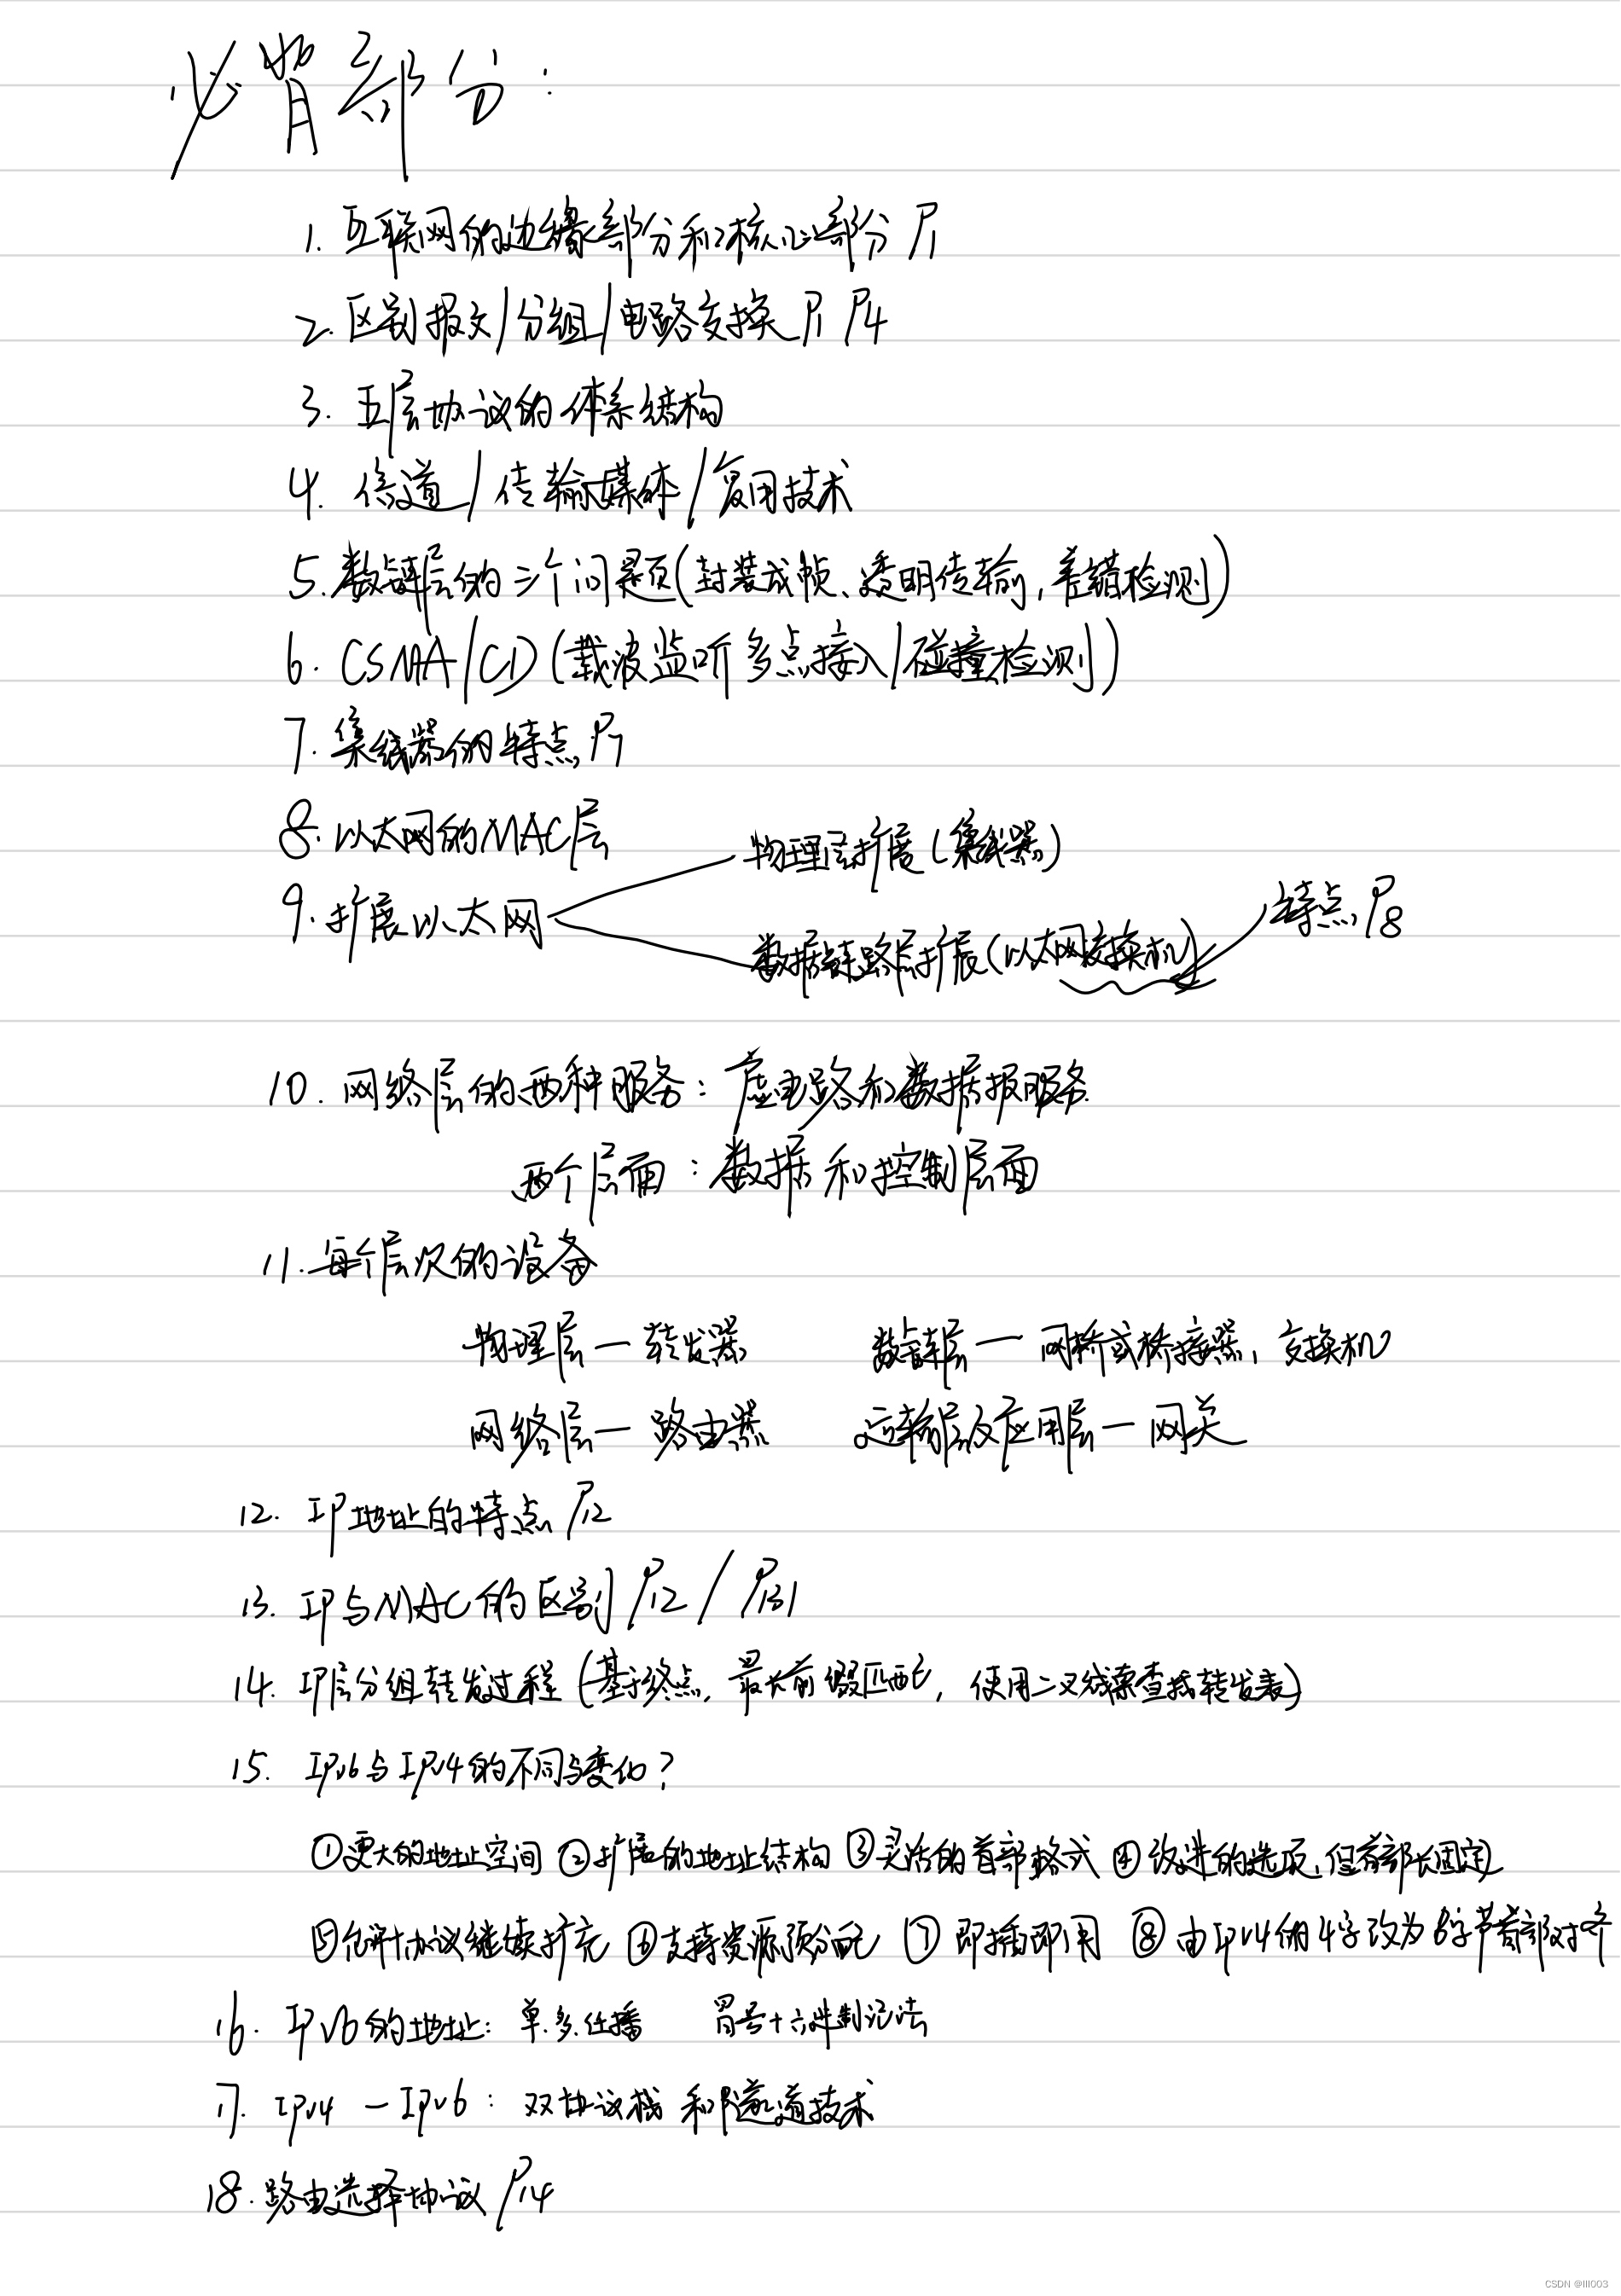 必背部分:
1. 互联网的边缘部分和核心部分 P1
2. 区别报文/分组/电路交换 P1 P4
3. 五层协议的体系结构
4. 信道/传输媒体/复用技术
5. 数链层的三个问题(封装成帧、透明传输,差错检测)
6. CSMA/CD(载波监听多点接入/碰撞检测)
7. 集线器的特点 P7
8. 以太网的MAC层
物理层扩展(集线器)
9. 扩展以太网
特点 P8
数据链路层扩展(以太网交换机)
10. 网络层的两种服务: 虚电路和数据报服务
两个层面: 数据和控制层面
11. 每个层次的设备
物理层—转发器 数链层—网桥或桥接器, 交换机
网络层—路由器 运输层及应用层—网关
12. IP地址的特点 P12
13. IP与MAC的区别 P12/P131
14. IP层分组转发过程(基于终点, 最长前缀匹配, 使用二叉线索查找转发表)
15. IPv6与IPv4的不同与变化?
①更大的地址空间 ②扩展的地址结构 ③灵活的首部格式 ④改进的选项,但首部长固定
⑤允许协议继续扩充 ⑥支持资源预分配 ⑦即插即用 ⑧由IPv4的4字改为8字节首部对齐
16. IPv6的地址: 单.多.任播 冒号十六进制记法
17. IPv4—IPv6: 双协议栈和隧道技术
18. 路由选择协议 P14
CSDN @lll003